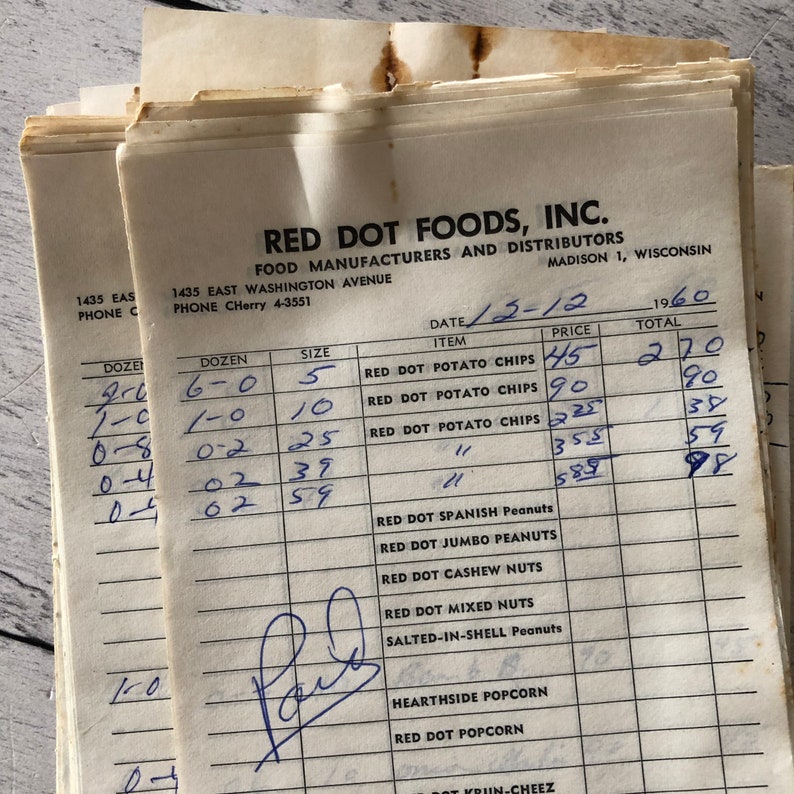 RED DOT FOODS, INC.
FOOD MANUFACTURERS AND DISTRIBUTORS
1435 EAST WASHINGTON AVENUE MADISON 1, WISCONSIN
PHONE CHerry 4-3551
DATE 12-12 1960
DOZEN SIZE ITEM PRICE TOTAL
6-0 5 RED DOT POTATO CHIPS 45 2 70
1-0 10 RED DOT POTATO CHIPS 90 90
0-2 25 RED DOT POTATO CHIPS 2 25 38
02 39 " 3 55 59
02 59 " 5 89 98
RED DOT SPANISH Peanuts
RED DOT JUMBO PEANUTS
RED DOT CASHEW NUTS
RED DOT MIXED NUTS
SALTED-IN-SHELL Peanuts
Paid
HEARTHSIDE POPCORN
RED DOT POPCORN
RED DOT KRUN-CHEEZ
1435 EAS
PHONE C
DOZEN
1-0
0-8
0-4
0-4
1-0
0-4